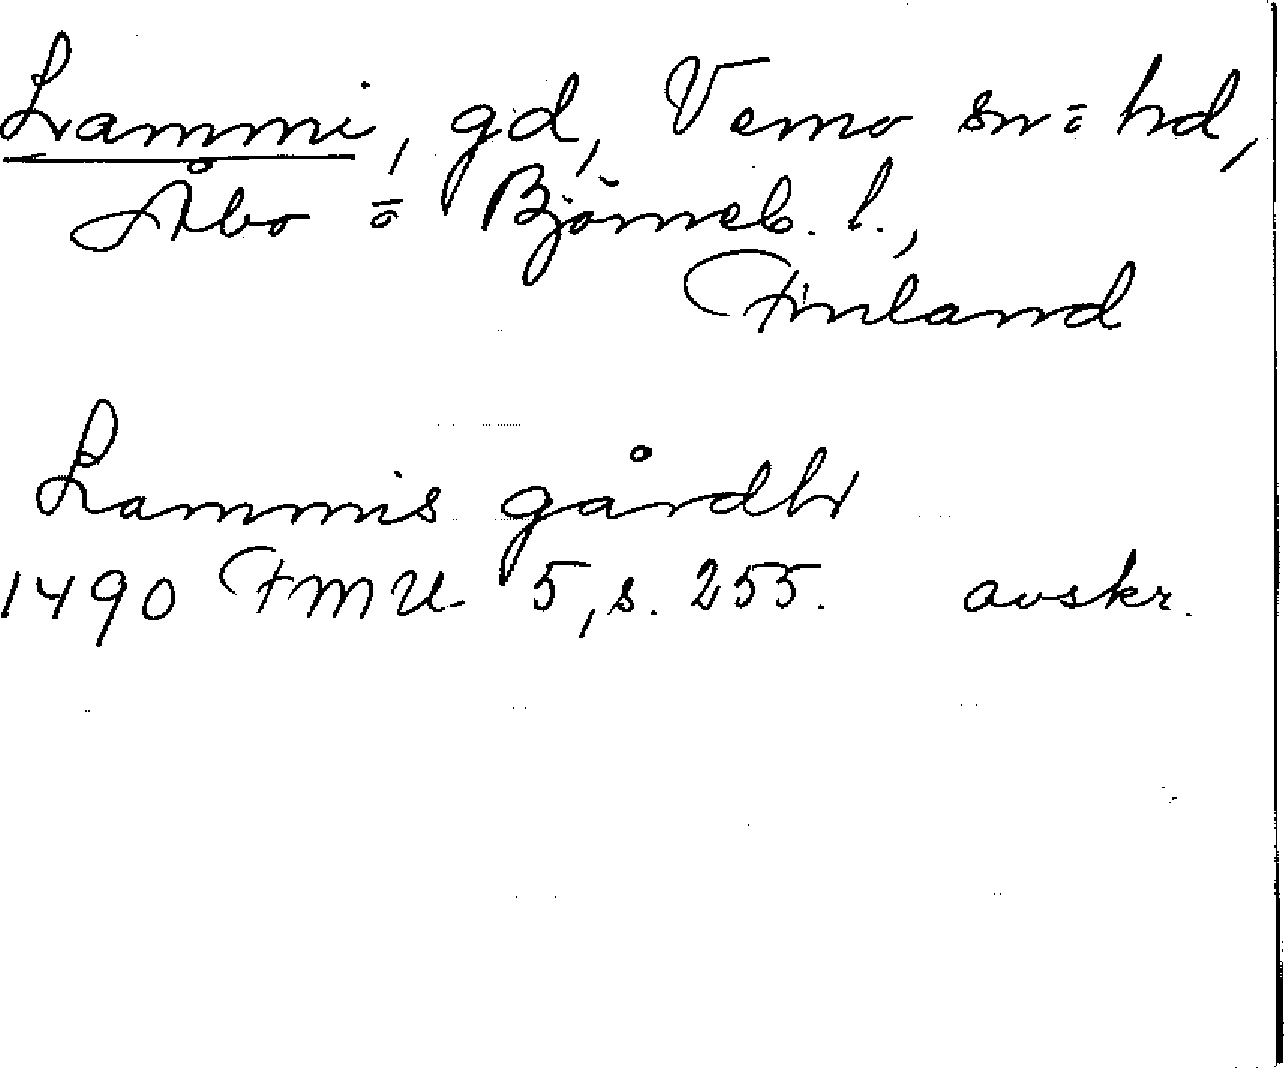 Lammi, gd, Vemo sn o hd,
Åbo o Björneb. l.,
Finland
Lammis gårdh
1490 FMU 5, s. 255. avskr.